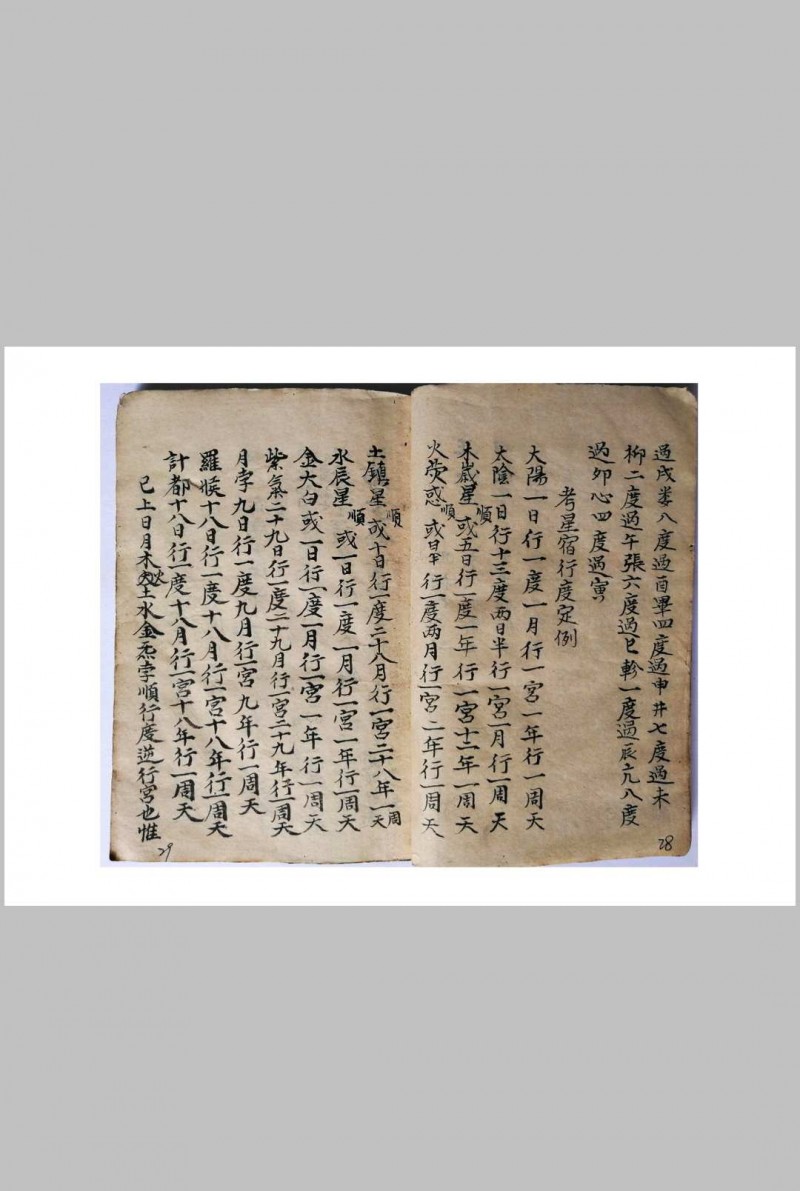 過戌娄八度過酉畢四度過申井七度過未
柳二度過午張六度過巳軫一度過辰亢八度
過卯心四度過寅
考星宿行度定例
太陽一日行一度一月行一宮一年行一周天
太陰一日行十三度兩日半行一宮一月行一周天
木歲星順或五日行一度一年行一宮十二年一周天
火荧惑順或日半行一度兩月行一宮二年行一周天
28
土鎮星順或十日行一度二十八月行一宮二十八年一周天
水辰星順或一日行一度一月行一宮一年行一周天
金太白或一日行一度一月行一宮一年行一周天
紫氣二十九日行一度二十九月行一宮二十九年行一周天
月孛九日行一度九月行一宮九年行一周天
羅睺十八日行一度十八月行一宮十八年行一周天
計都十八日行一度十八月行一宮十八年行一周天
已上日月木火土水金炁孛順行度逆行宮也惟
29